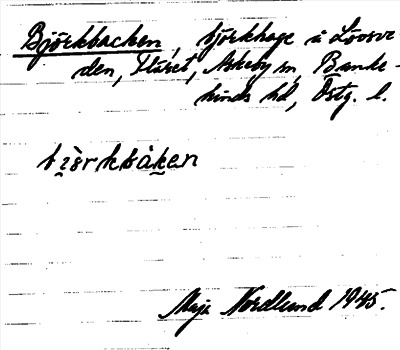 Björkbacken, björkhage å Loorve-
den, Huset, Askeby sn, Banke-
kinds hd, Östg. l.
bi̯ö̀rkbàken
Maja Nordlund 1945.